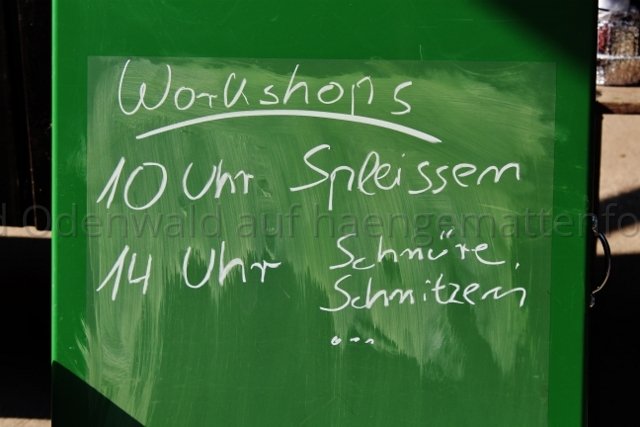 Workshops
10 Uhr Spleissen
14 Uhr Schnüre,
Schnitzen
...
Odenwald auf haengemattenfo